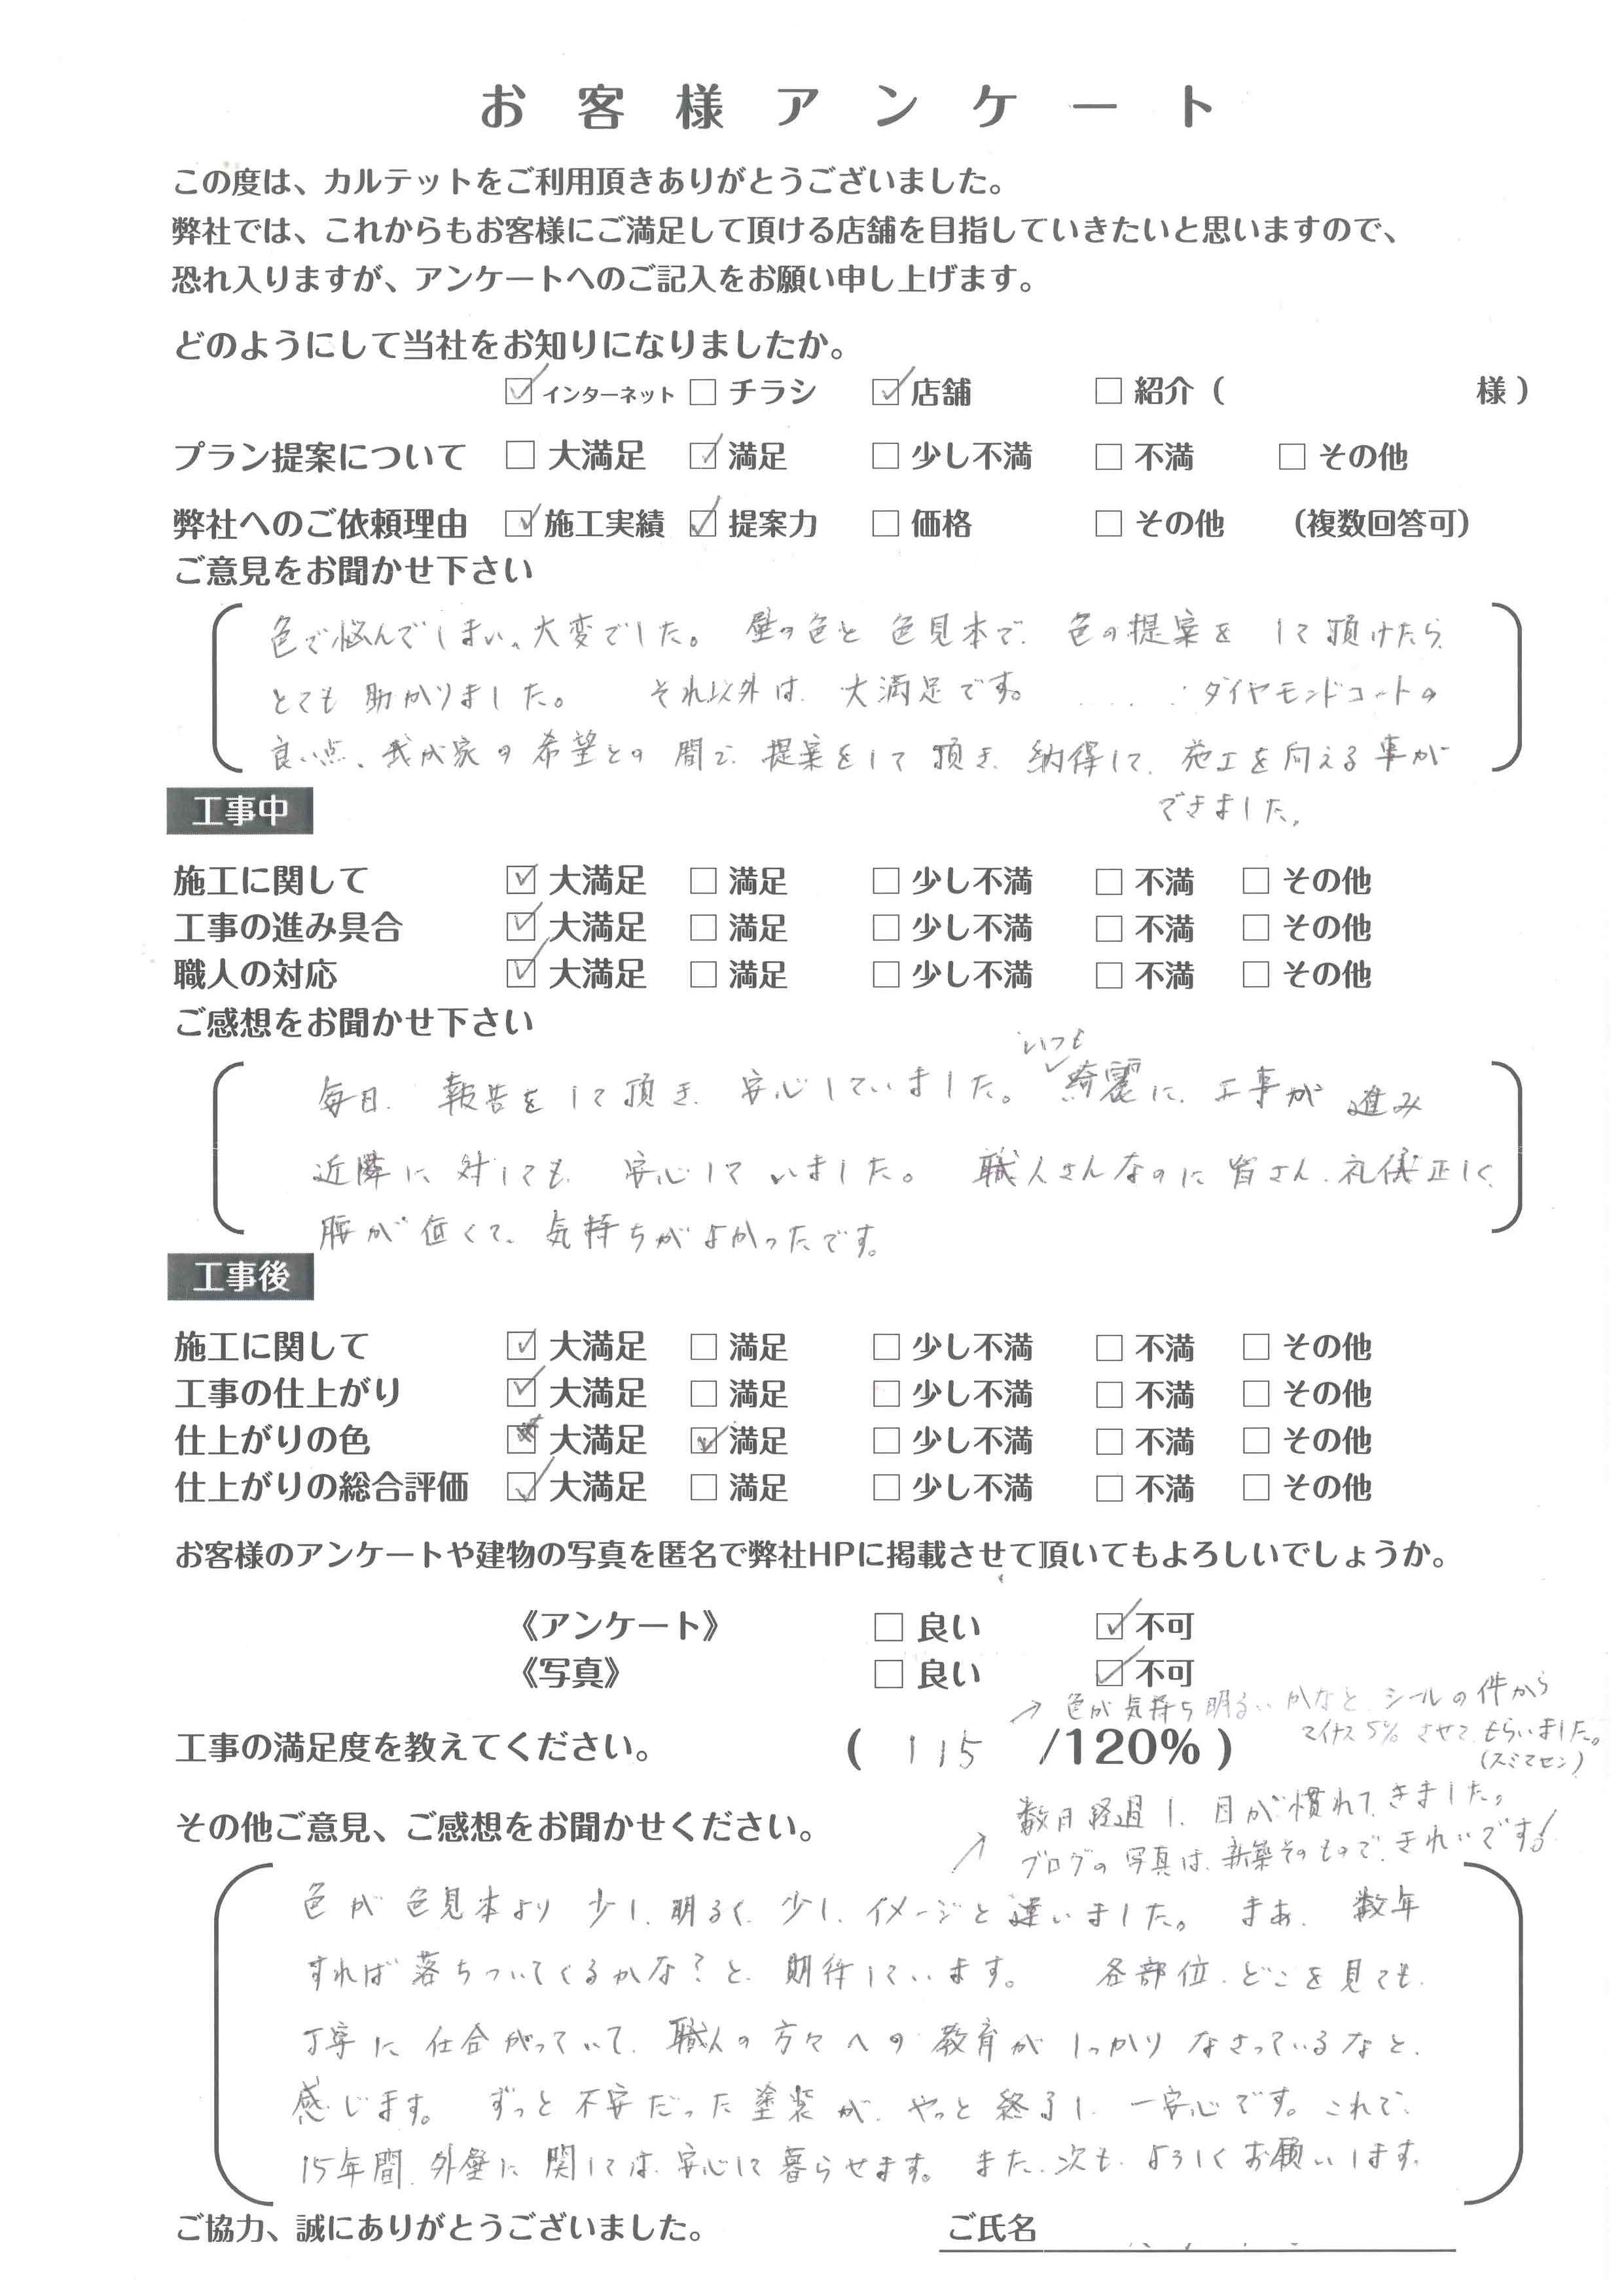 お客様アンケート
この度は、カルテットをご利用頂きありがとうございました。
弊社では、これからもお客様にご満足して頂ける店舗を目指していきたいと思いますので、
恐れ入りますが、アンケートへのご記入をお願い申し上げます。
どのようにして当社をお知りになりましたか。
☑ インターネット □ チラシ ☑ 店舗 □ 紹介 ( 様 )
プラン提案について □ 大満足 ☑ 満足 □ 少し不満 □ 不満 □ その他
弊社へのご依頼理由 ☑ 施工実績 ☑ 提案力 □ 価格 □ その他 (複数回答可)
ご意見をお聞かせ下さい
色で悩んでしまい、大変でした。壁の色と色見本で、色の提案をして頂けたら、
とても助かりました。 それ以外は、大満足です。 ダイヤモンドコートの
良い点、我が家の希望との間で、提案をして頂き、納得して、施工を向える事が
できました。
工事中
施工に関して ☑ 大満足 □ 満足 □ 少し不満 □ 不満 □ その他
工事の進み具合 ☑ 大満足 □ 満足 □ 少し不満 □ 不満 □ その他
職人の対応 ☑ 大満足 □ 満足 □ 少し不満 □ 不満 □ その他
ご感想をお聞かせ下さい
いつも
毎日、報告をして頂き、安心していました。綺麗に、工事が進み
近隣に対しても、安心していました。職人さんなのに皆さん、礼儀正しく、
腰が低くて、気持ちがよかったです。
工事後
施工に関して ☑ 大満足 □ 満足 □ 少し不満 □ 不満 □ その他
工事の仕上がり ☑ 大満足 □ 満足 □ 少し不満 □ 不満 □ その他
仕上がりの色 □ 大満足 ☑ 満足 □ 少し不満 □ 不満 □ その他
仕上がりの総合評価 ☑ 大満足 □ 満足 □ 少し不満 □ 不満 □ その他
お客様のアンケートや建物の写真を匿名で弊社HPに掲載させて頂いてもよろしいでしょうか。
《アンケート》 □ 良い ☑ 不可
《写真》 □ 良い ☑ 不可
→ 色が気持ち明るいかなと、シールの件から
マイナス5%させてもらいました。
(スミマセン)
工事の満足度を教えてください。 ( 115 /120% )
数月経過し、目が慣れてきました。
→ ブログの写真は、新築そのもので、きれいです!
その他ご意見、ご感想をお聞かせください。
色が色見本より少し、明るく、少し、イメージと違いました。まあ、数年
すれば落ちついてくるかな?と、期待しています。 各部位、どこを見ても、
丁寧に仕合がっていて、職人の方々への教育がしっかりなさっているなと、
感じます。ずっと不安だった塗装が、やっと終了し、一安心です。これで、
15年間、外壁に関しては、安心して暮らせます。また、次も、よろしくお願いします。
ご協力、誠にありがとうございました。 ご氏名